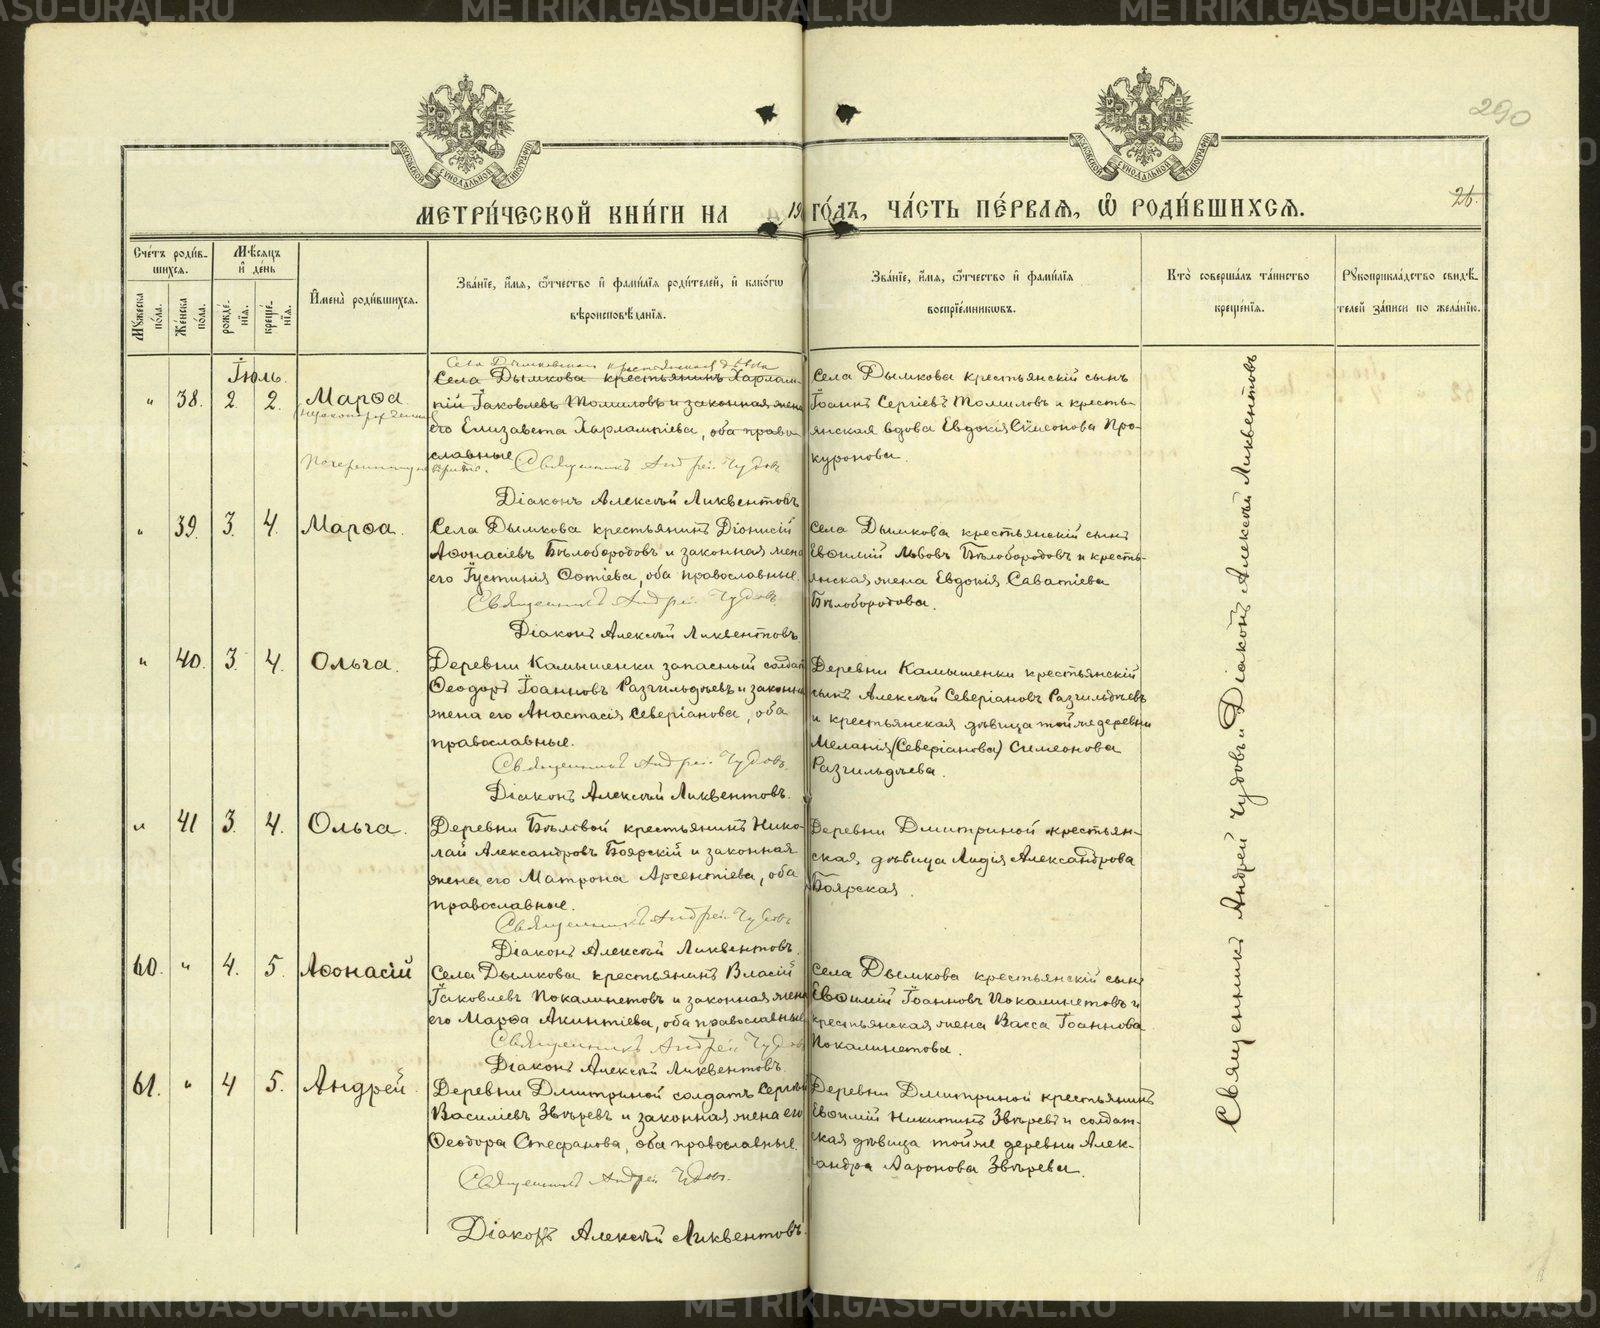 METRIKI.GASO-URAL.RU
290
26.
МЕТРИ́ЧЕСКОЙ КНИ́ГИ НА 19 ГО́ДЪ, ЧА́СТЬ ПЕ́РВАѦ, Ѽ РОДИ́ВШИХСѦ.
Сче́тъ роди́в-
шихсѧ.
Мꙋ́жеска по́ла.
Же́нска по́ла.
Мѣ́сѧцъ и҆ де́нь
рожде́нїѧ.
креще́нїѧ.
И҆мена̀ роди́вшихсѧ.
Зва́нїе, и҆́мѧ, ѻ҆́тчество и҆ фами́лїѧ роди́телей, и҆ како́гѡ
вѣроисповѣ́данїѧ.
Зва́нїе, и҆́мѧ, ѻ҆́тчество и҆ фами́лїѧ
воспрїе́мникѡвъ.
Кто̀ соверша́лъ та́инство
креще́нїѧ.
Рꙋкоприкла́дство свидѣ́-
телей за́писи по жела́нїю.
Іюль.
„ 38. 2 2. Марѳа
Села Дымковскаго крестьянская дѣвица
Села Дымкова крестьянинъ Харлам-
пій Іаковлевъ Томиловъ и законная жена
его Елизавета Харлампіева, оба право-
славные
Священникъ Андрей Чудовъ
Діаконъ Алексѣй Ликвентовъ
Села Дымкова крестьянскій сынъ
Іоаннъ Сергіевъ Томиловъ и кресть-
янская вдова Евдокія Симеонова Про-
куронова.
„ 39. 3. 4. Марѳа.
Села Дымкова крестьянинъ Діонисій
Аѳонасіевъ Бѣлобородовъ и законная жена
его Іустинія Фотіева, оба православные.
Священникъ Андрей Чудовъ
Діаконъ Алексѣй Ликвентовъ
Села Дымкова крестьянскій сынъ
Евѳимій Львовъ Бѣлобородовъ и кресть-
янская жена Евдокія Саватіева
Бѣлобородова.
„ 40. 3. 4. Ольга.
Деревни Камышенки запасный солдатъ
Ѳеодоръ Іоанновъ Разгильдѣевъ и законная
жена его Анастасія Северіанова, оба
православные.
Священникъ Андрей Чудовъ
Діаконъ Алексѣй Ликвентовъ.
Деревни Камышенки крестьянскій
сынъ Алексѣй Северіановъ Разгильдѣевъ
и крестьянская дѣвица той же деревни
Меланія (Северіанова) Симеонова
Разгильдѣева.
„ 41 3. 4. Ольга.
Деревни Бѣловой крестьянинъ Нико-
лай Александровъ Боярскій и законная
жена его Матрона Арсентіева, оба
православные.
Священникъ Андрей Чудовъ
Діаконъ Алексѣй Ликвентовъ.
Деревни Дмитриной крестьян-
ская дѣвица Лидія Александрова
Боярская.
60. „ 4. 5. Аѳонасій
Села Дымкова крестьянинъ Власій
Іаковлевъ Покалинетовъ и законная жена
его Марѳа Акинтіева, оба православные
Священникъ Андрей Чудовъ
Діаконъ Алексѣй Ликвентовъ.
Села Дымкова крестьянскій сынъ
Евѳимій Іоанновъ Покалинетовъ и
крестьянская жена Васса Іоаннова
Покалинетова.
61. „ 4 5. Андрей.
Деревни Дмитриной солдатъ Сергѣй
Василіевъ Звѣревъ и законная жена его
Ѳеодора Стефанова, оба православные.
Священникъ Андрей Чудовъ.
Діаконъ Алексѣй Ликвентовъ.
Деревни Дмитриной крестьянинъ
Евѳимій Никитинъ Звѣревъ и солдат-
ская дѣвица той же деревни Алек-
андра Ааронова Звѣрева.
Священникъ Андрей Чудовъ и Діаконъ Алексѣй Ликвентовъ